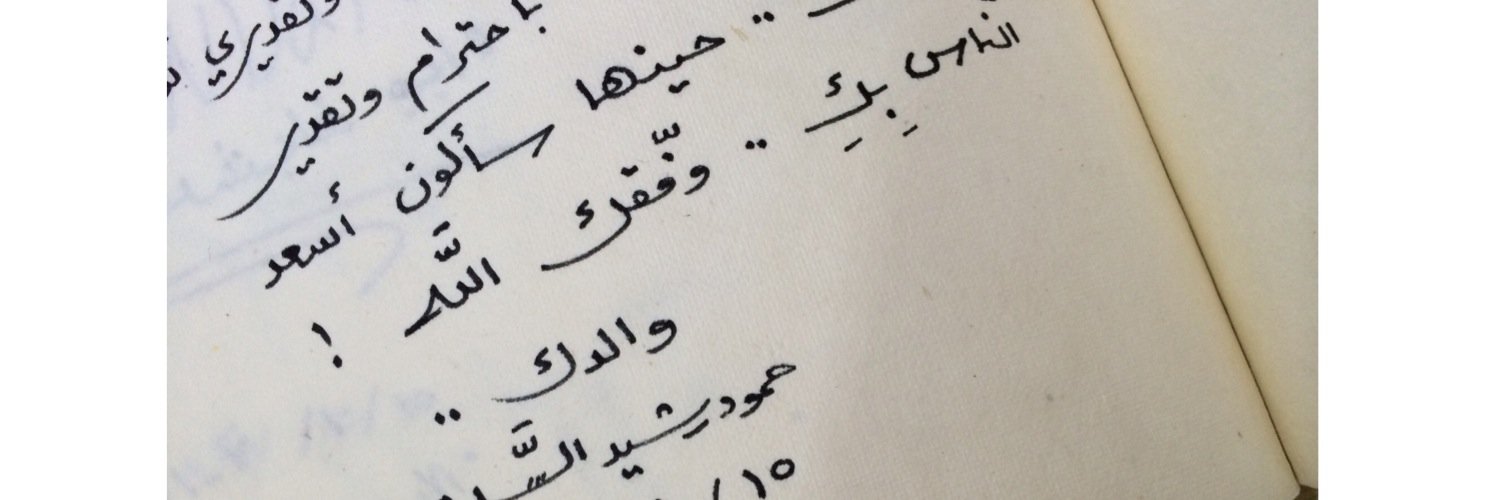 وتقديري
باحترام وتقدير
.. حينها سأكون أسعد
الناس بِكِ .. وفّقك اللَّه !
والدك ..
حمود رشيد
١٥ /